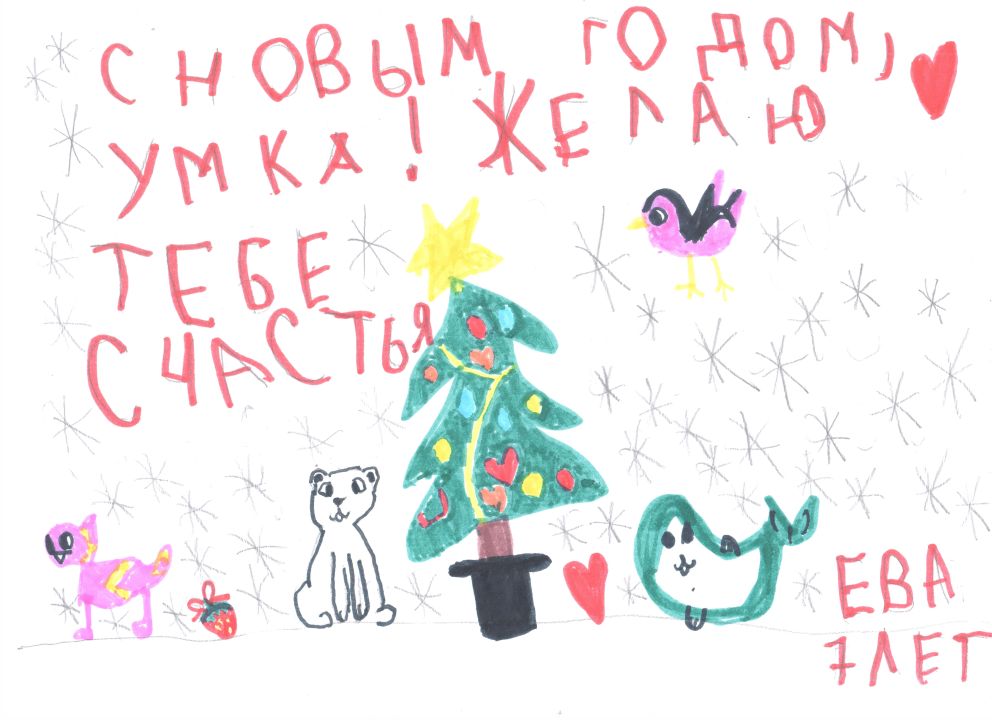 С НОВЫМ ГОДОМ,
УМКА! ЖЕЛАЮ
ТЕБЕ
СЧАСТЬЯ
ЕВА
7 ЛЕТ